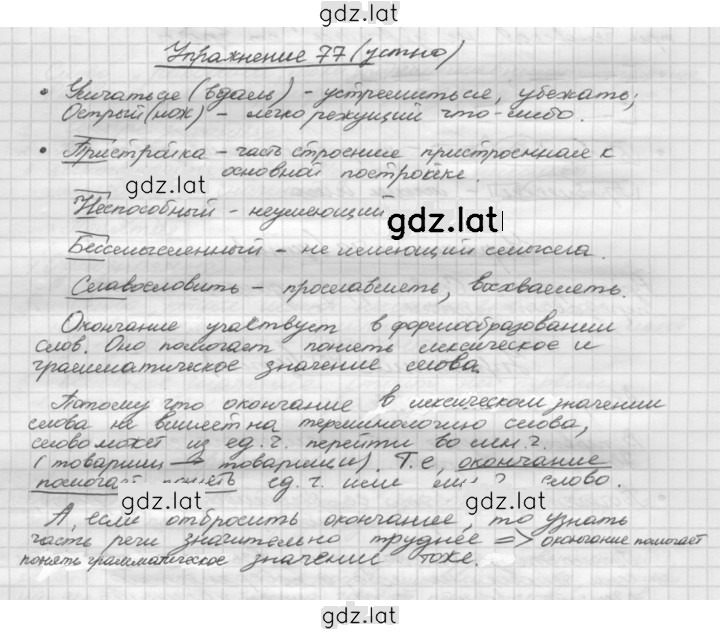 gdz.lat
Упражнение 77 (устно)
• Умчаться (вдаль) - устремиться, убежать;
Острый (нож) - легко режущий что-либо.
• Пристройка - часть строение пристроенная к
основной постройке.
gdz.lat
Неспособный - неумеющий
gdz.lat
Бессмысленный - не имеющий смысла.
Славословить - прославлять, восхвалять.
Окончание участвует в формообразовании
слов. Оно помогает понять лексическое и
грамматическое значение слова.
Потому что окончание в лексическом значении
слова не влияет на терминологию слова,
слово может из ед.ч. перейти во мн.ч.
(товарищ → товарищи). Т.е, окончание
помогает понять ед.ч. или мн.ч слово.
gdz.lat
А, если отбросить окончание, то узнать
часть речи значительно труднее => окончание помогает
понять грамматическое значение тоже.
gdz.lat